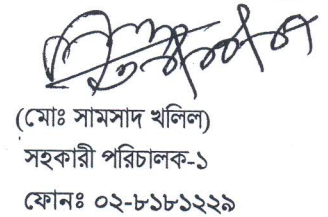 (মোঃ সামসাদ খলিল)
সহকারী পরিচালক-১
ফোনঃ ০২-৮১৮১২২৯